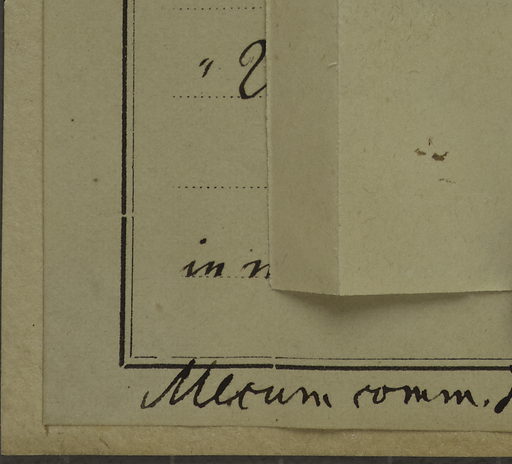 in
Mecum comm.